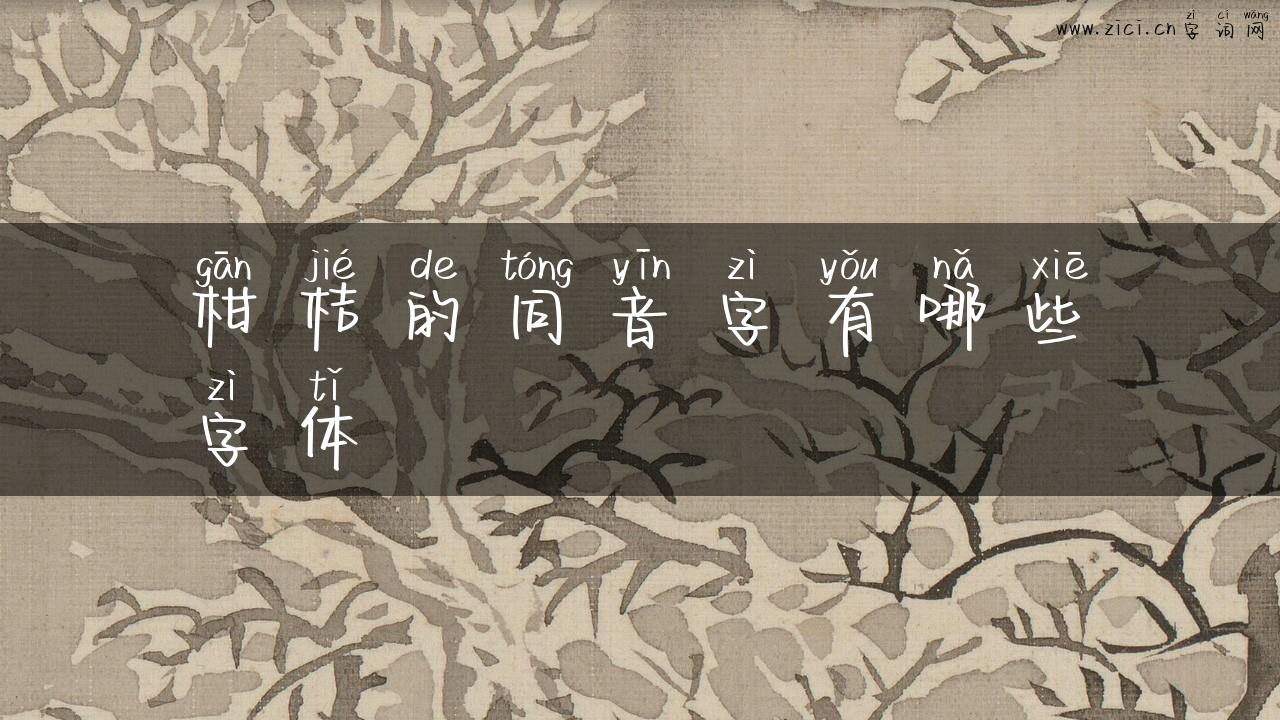 zì cí wǎng
www.zici.cn字词网
gān jié de tóng yīn zì yǒu nǎ xiē
柑桔的同音字有哪些
zì tǐ
字体